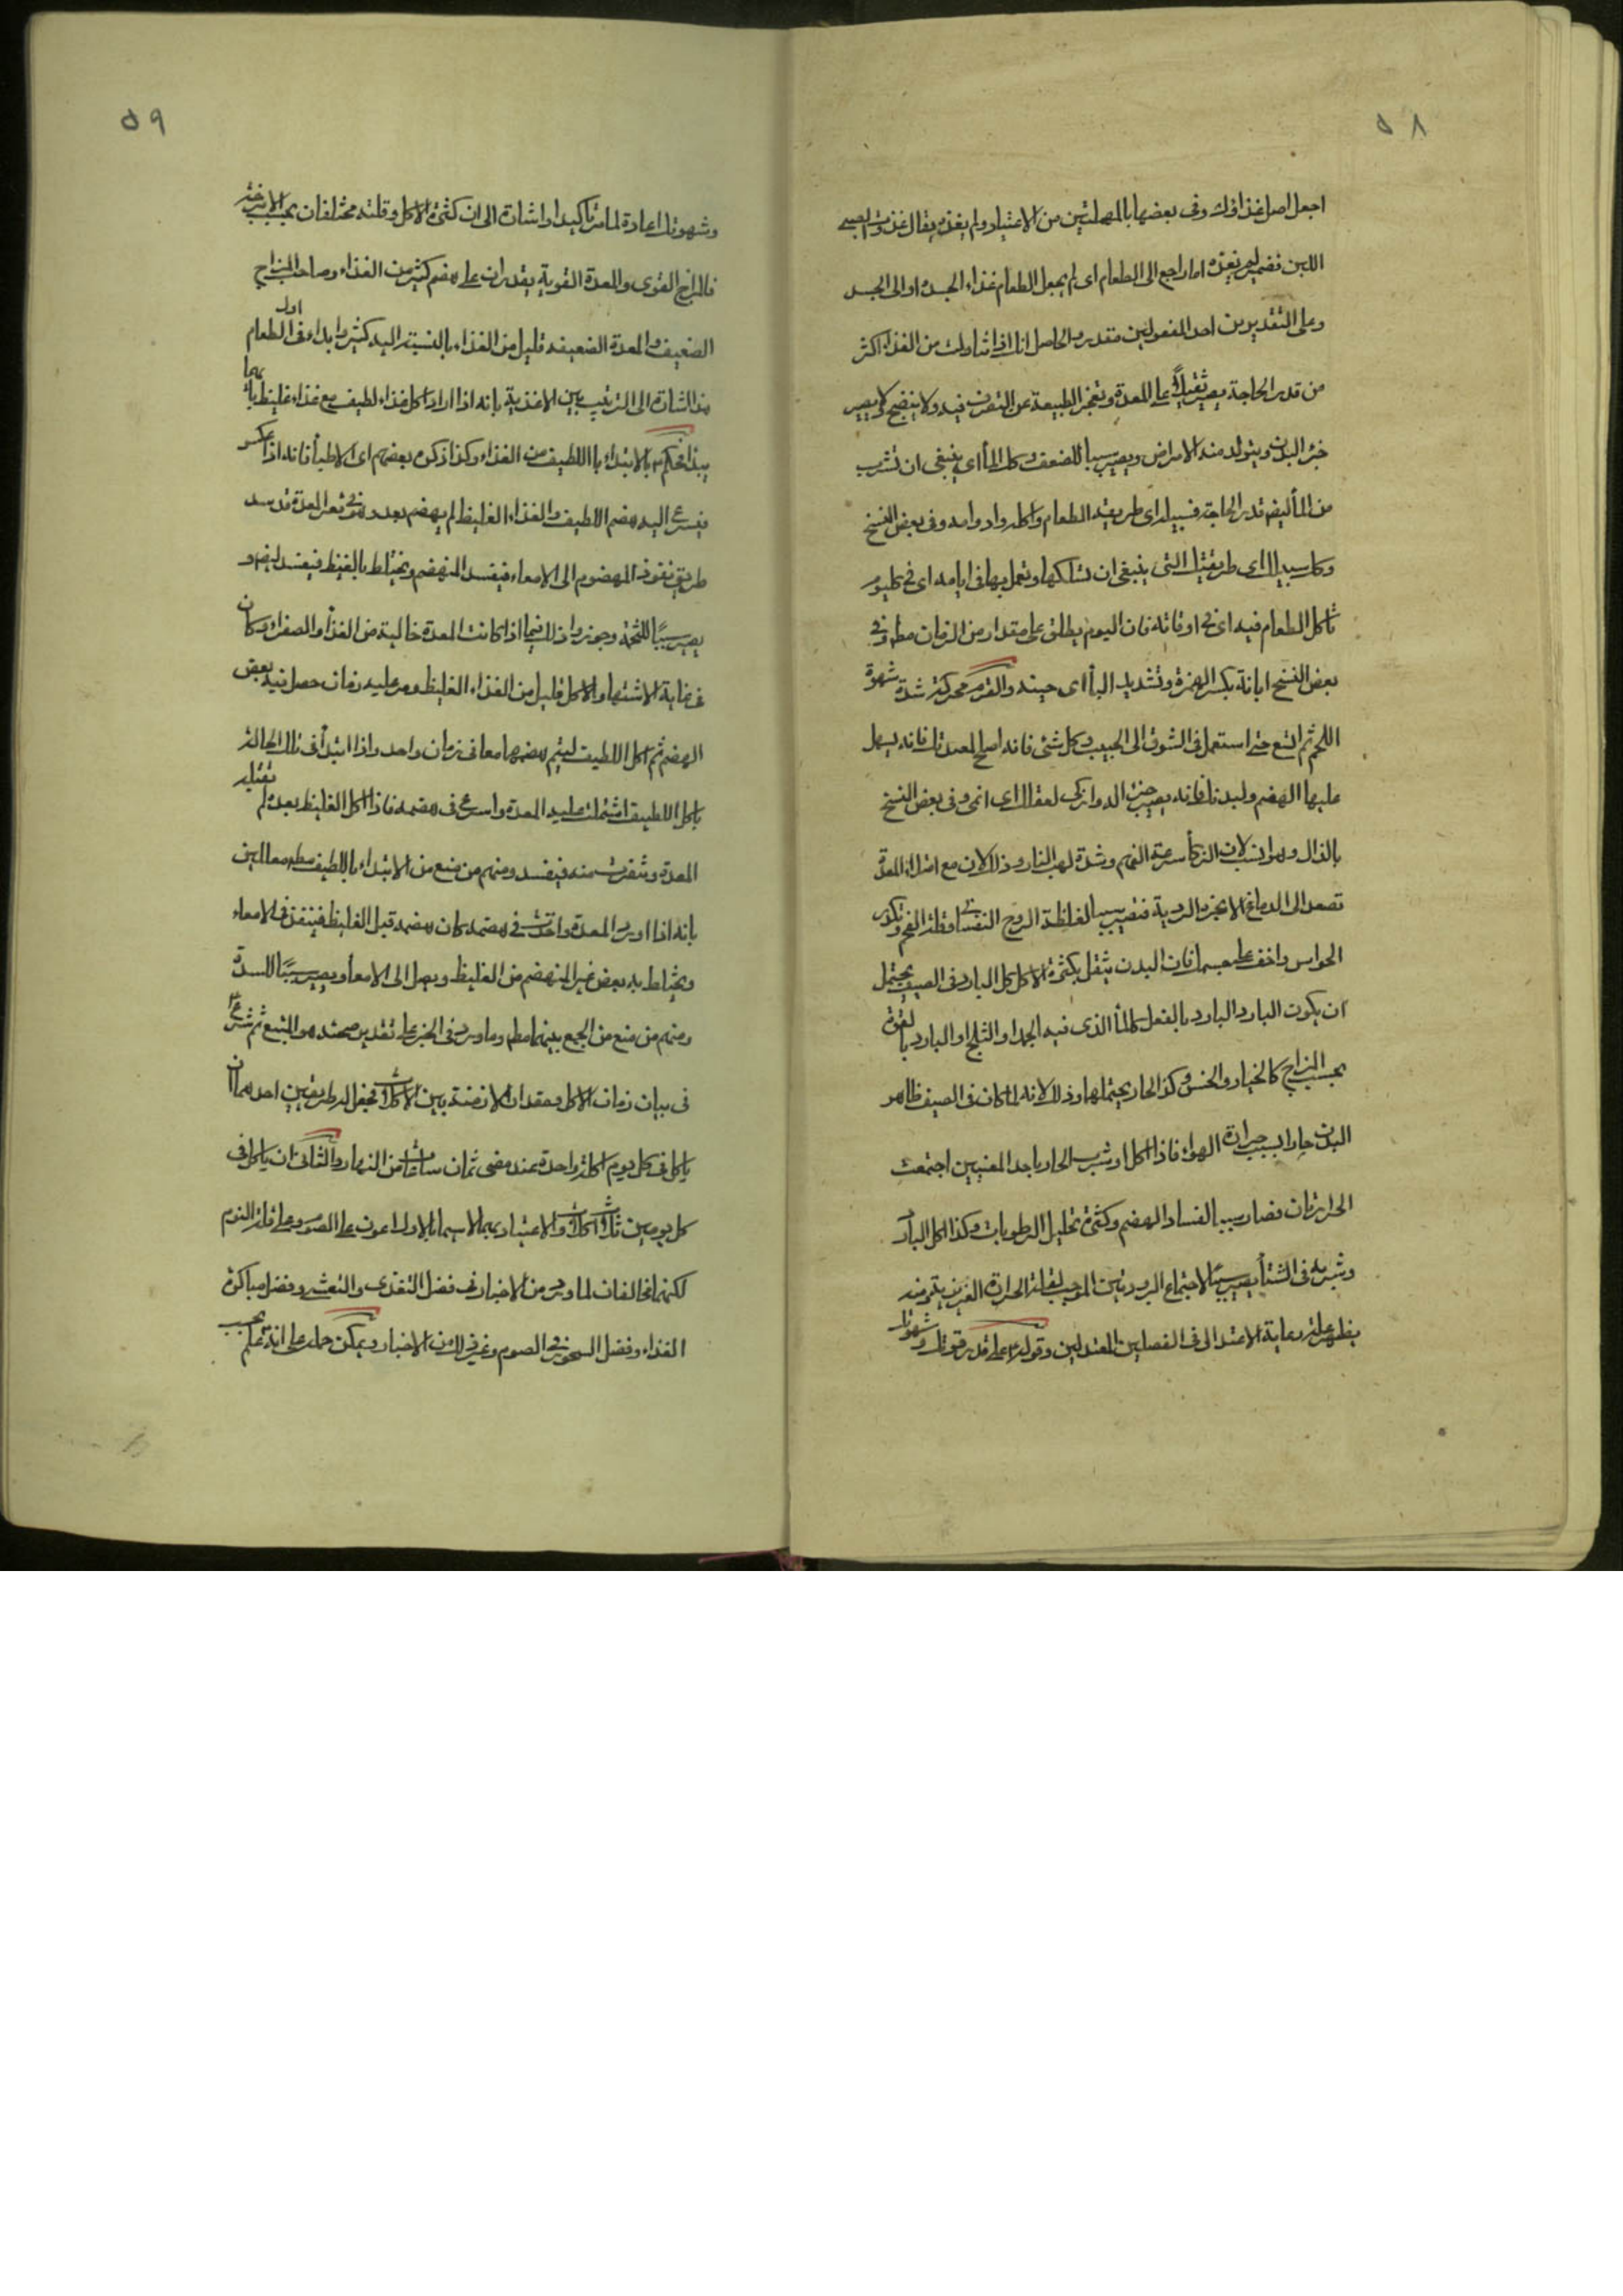 ٥٨
اجعل اصل غذاؤك وفى بعضها بالمهملتين من الاعتياد ولم يغذه يقال غذوت الصبى
اللبن فضمير لم يغذه اما راجع الى الطعام اى لم يجعل الطعام غذاء الجسد او الى الجسد
وعلى التقديرين احد المفعولين مقدر والحاصل انك اذا تناولت من الغذاء اكثر
من قدر الحاجة يصير ثقيلا على المعدة وتعجز الطبيعة عن التصرف فيه ولا ينضج ولا يصير
جزء البدن ويتولد منه الامراض ويصير سببا للضعف وكذا الماء اى ينبغى ان تشرب
من الماء ايضا قدر الحاجة فسبيله اى طريقة الطعام واكله وادوامه وفى بعض النسخ
وكل سبيلك اى طريقتك التى ينبغى ان تسلكها وتعمل بها فى ايامه اى فى كل يوم
تاكل الطعام فيه اى فى اوقاته فان اليوم يطلق على مقدار من الزمان مطلقا وفى
بعض النسخ ابانة بكسر الهمزة وتشديد الباء اى حينه والقرم محركة شدة شهوة
اللحم ثم اتسع حتى استعمل فى الشوق الى الحبيب وكل شئ فانه اصلح لمعدتك فانه يسهل
عليها الهضم ولبدنك فانه يصير جزء الد وازكى لعقلك اى انمى وفى بعض النسخ
بالذال وهو انسب لان الذكاء سرعة الفهم وشدة لهب النار وذلك لان مع امتلاء المعدة
تصعد الى الدماغ الابخرة الردية فتصير سببا لغلظة الروح النفسانى وقلة الفهم وتكدر
الحواس واخف على جسمك فان البدن يثقل بكثرة الاكل كل البارد فى الصيف يحتمل
ان يكون البارد البارد بالفعل كالماء الذى فيه الجمد او الثلج او البارد بالقوة
بحسب المزاج كالخيار والخس وكذا الحار يحتملها وذلك لانه لما كان فى الصيف ظاهر
البدن حارا بسبب حرارة الهواء فاذا اكل او شرب الحار باحد المعنيين اجتمعت
الحرارتان فصار سببا لفساد الهضم وكثرة تحليل الرطوبات وكذا اكل البارد
وشربه فى الشتاء يصير سببا لاجتماع البرودتين الموجب لقلة الحرارة الغريزية ومنه
يظهر علة رعاية الاعتدال فى الفصلين المعتدلين وقوله على قدر قوتك وشهوتك
٥٩
وشهوتك اعادة لما مر تاكيدا او اشارة الى ان كثرة الاكل وقلته مختلفان بحسب الامزجة
فالمزاج القوى والمعدة القوية يقدران على هضم كثير من الغذاء وصاحب المزاج
الضعيف والمعدة الضعيفة قليل من الغذاء بالنسبة اليه كثير وابدء فى اول الطعام
هذا اشارة الى الترتيب بين الاغذية بانه اذا اراد اكل غذاء لطيف مع غذاء غليظ بايهما
يبدء فحكم بالابتداء باللطيف من الغذاء وكذا ذكره بعضهم اى الاطباء فانه اذا عكس
فيسرع اليه هضم اللطيف والغذاء الغليظ لم يهضم بعد وهو فى قعر المعدة قد سد
طريق نفوذ المهضوم الى الامعاء فيفسد المنهضم ويختلط بالغليظ فيفسده ايضا و
يصير سببا للتخمة وجوزوا ذلك فيما اذا كانت المعدة خالية من الغذاء والصفراء وكان
فى غاية الاشتهاء والاكل قليل من الغذاء الغليظ ومر عليه زمان حصل فيه بعض
الهضم ثم اكل اللطيف ليتم هضمهما معا فى زمان واحد واذا ابتدأ فى تلك الحالة
باكل اللطيف اشتملت عليه المعدة واسرع فى هضمه فاذا اكل الغليظ بعده لم تقبله
المعدة وتنفرت منه فيفسد ومنهم من منع من الابتداء باللطيف مطلقا معللين
بانه اذا ورد المعدة واخذت فى هضمه كان هضمه قبل الغليظ فينفذ فى الامعاء
ويختلط به بعض غير المنهضم من الغليظ ويصل الى الامعاء ويصير سببا للسدة
ومنهم من منع من الجمع بينهما مطلقا وما ورد فى الخبر على تقدير صحته هو المتبع ثم شرع
فى بيان زمان الاكل ومقدار الازمنة بين الاكلات فجعل له طريقين احدهما ان
ياكل فى كل يوم اكلة واحدة عند مضى ثمان ساعات من النهار والثانى ان ياكل فى
كل يومين ثلاث اكلات والاعتياد بهما لاسيما بالاول اعون على الصوم وعلى قلة النوم
لكنهما مخالفان لما ورد من الاخبار فى فضل التغدى والتعشى وفضل مباكرة
الغذاء وفضل السحور فى الصوم وغير ذلك من الاخبار ويمكن حمله على انه علم بحسب